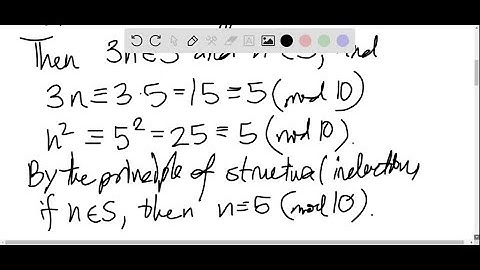 Then 3n∈S and n²∈S, and
3n ≡ 3·5 = 15 ≡ 5 (mod 10)
n² ≡ 5² = 25 ≡ 5 (mod 10).
By the principle of structural induction,
if n∈S, then n≡5 (mod 10).